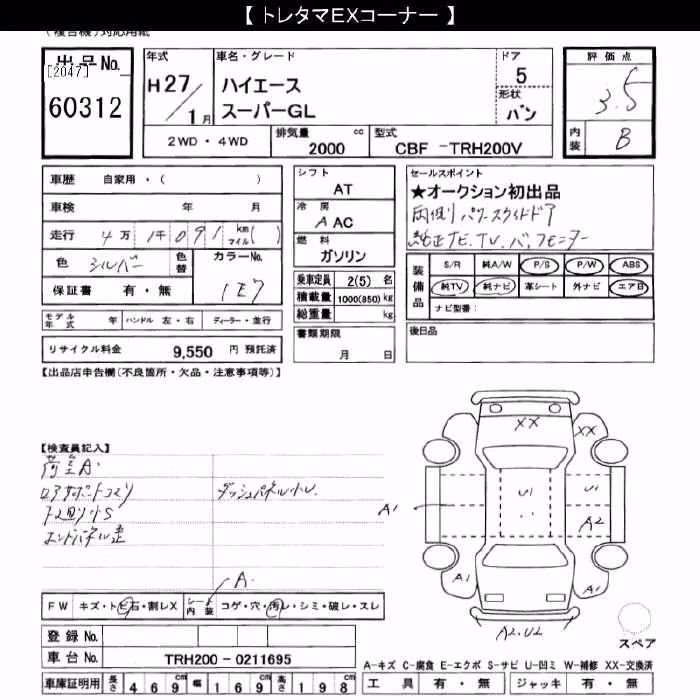 【 トレタマEXコーナー 】
(複合機)対応用紙
出品No.
[2047]
60312
年式
H27/1月
車名・グレード
ハイエース
スーパーGL
ドア
5
形状
バン
評価点
3.5
内装
B
2WD・4WD
排気量 2000 cc
型式 CBF -TRH200V
車歴 自家用・( )
車検 年 月
走行 4万1千091 km マイル( )
色 シルバー
色替
カラーNo.
1E7
保証書 有・無
モデル年式 年 ハンドル 左・右 ディーラー・並行
リサイクル料金 9,550 円 預託済
シフト
AT
冷房
A AC
燃料
ガソリン
乗車定員 2(5) 名
積載量 1000(850) kg
総重量 kg
書類期限
月 日
セールスポイント
★オークション初出品
両側パワースライドドア
純正ナビ.TV.バックモニター
装備品
S/R 純A/W P/S P/W ABS
純TV 純ナビ 革シート 外ナビ エア日
ナビ型番:
後日品
【出品店申告欄(不良箇所・欠品・注意事項等)】
【検査員記入】
荷室A.
ロアサポートコスリ
下廻り小S
エンドパネル歪
A.
FW キズ・トビ石・割レX
シート内装 コゲ・穴・汚レ・シミ・破レ・スレ
登録 No.
車台 No. TRH200 - 0211695
車庫証明用 長さ 469cm 幅 169cm 高さ 198cm
XX
XX
U1
U1
A1
A2
A1
A1
A2.U2
スペア
A-キズ C-腐食 E-エクボ S-サビ U-凹ミ W-補修 XX-交換済
工具 有・無 ジャッキ 有・無